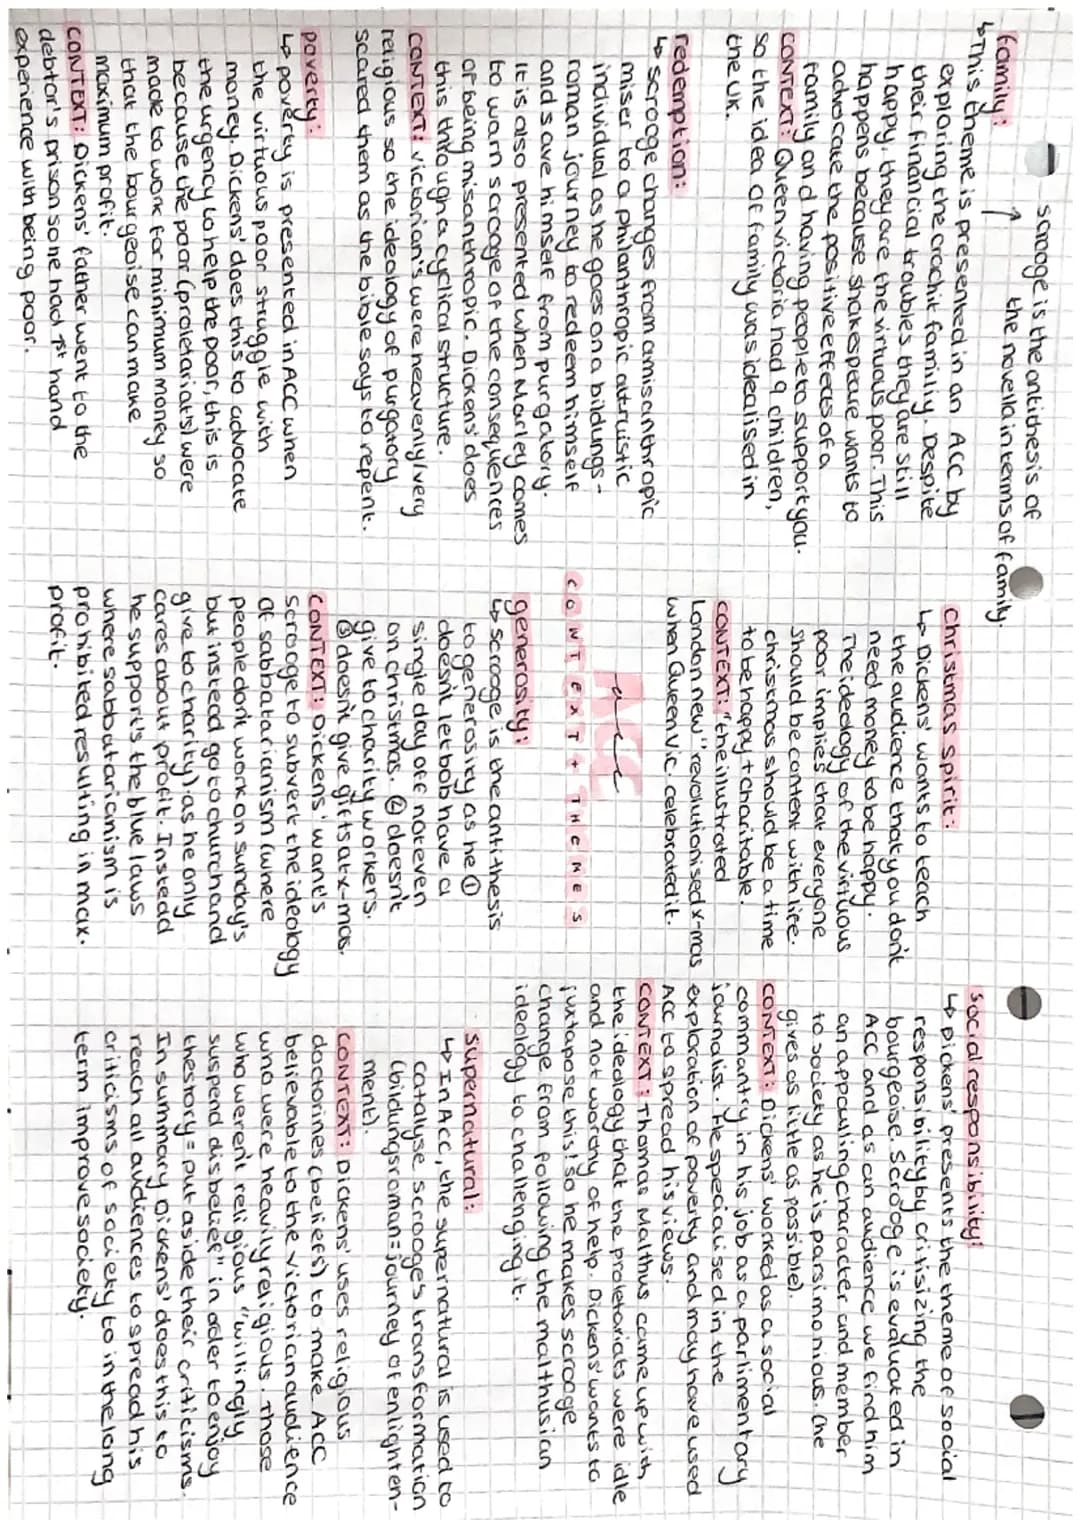 scrooge is the antithesis of
the novella in terms of family.
family:
↳This theme is presented in an ACC by
exploring the crachit familly. Despite
their financial troubles they are still
happy, they are the virtuous poor. This
happens because shakespeare wants to
advocate the positive effects of a
family and having people to support you.
CONTEXT: Queen victoria had 9 children,
so the idea of family was idealised in
the UK.
redemption:
↳ scrooge changes from a misanthropic
miser to a philanthropic altruistic
individual as he goes on a bildungs-
roman journey to redeem himself
and save himself from purgatory.
It is also presented when Marley comes
to warn scrooge of the consequences
of being misanthropic. Dickens' does
this through a cyclical structure.
CONTEXT: victorian's were heavenly/very
religious so the ideology of purgatory
scared them as the bible says to repent.
poverty:
↳ poverty is presented in ACC when
the virtuous poor struggle with
money. Dickens' does this to advocate
the urgency to help the poor, this is
because the poor (proletariats) were
made to work for minimum money so
that the bourgeoise can make
maximum profit.
CONTEXT: Dickens' father went to the
debtor's prison so he had 1st hand
experience with being poor.
Christmas spirit:
↳ Dickens' wants to teach
the audience that you don't
need money to be happy.
The ideology of the virtuous
poor implies that everyone
should be content with life.
christmas should be a time
to be happy + charitable.
CONTEXT: "the illustrated
London new" revolutionised x-mas
when Queen Vic. celebrated it.
ACC
acc
CONTEXT + THEMES
generosity:
↳ scrooge is the antithesis
to generosity as he ①
doesn't let bob have a
single day off not even
on chrismas. ② doesn't
give to charity workers.
③ doesn't give gifts at x-mas.
CONTEXT: Dickens' want's
scrooge to subvert the ideology
of sabbatarianism (where
people don't work on sunday's
but instead go to church and
give to charity) as he only
cares about profit. Instead
he support's the blue laws
where sabbatarianism is
prohibited resulting in max.
profit.
social responsibility:
↳ Dickens' presents the theme of social
responsibility by critisizing the
bourgeoise. Scrooge is evaluated in
ACC and as an audience we find him
an appauling character and member
to society as he is parsimonious. (he
gives as little as possible).
CONTEXT: Dickens' worked as a social
commantry in his job as a parlimentary
journalist. He specialised in the
exploration of poverty and may have used
ACC to spread his views.
CONTEXT: Thomas Malthus came up with
the ideology that the proletariats were idle
and not worthy of help. Dickens' wants to
juxtapose this! so he makes scrooge
change from following the malthusian
ideology to challenging it.
Supernatural:
↳ In ACC, the supernatural is used to
catalyse scrooge's transformation
(bildungsroman = journey of enlighten-
ment).
CONTEXT: Dickens' uses religious
doctorines (beliefs) to make ACC
believable to the victorian audience
who were heavily religious. Those
who weren't religious "willingly
suspend disbelief" in order to enjoy
the story = put aside their criticisms.
In summary Dickens' does this to
reach all audiences to spread his
criticisms of society to in the long
term improve society.